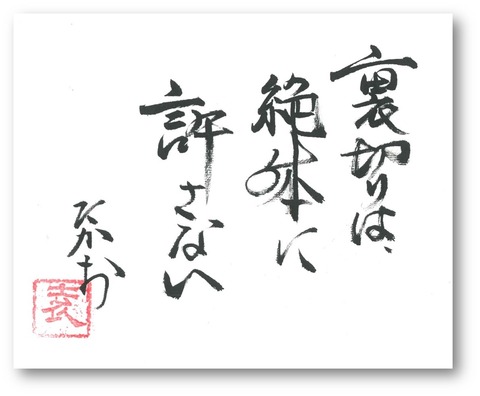 裏切りは、
絶体に
許さない
たかお